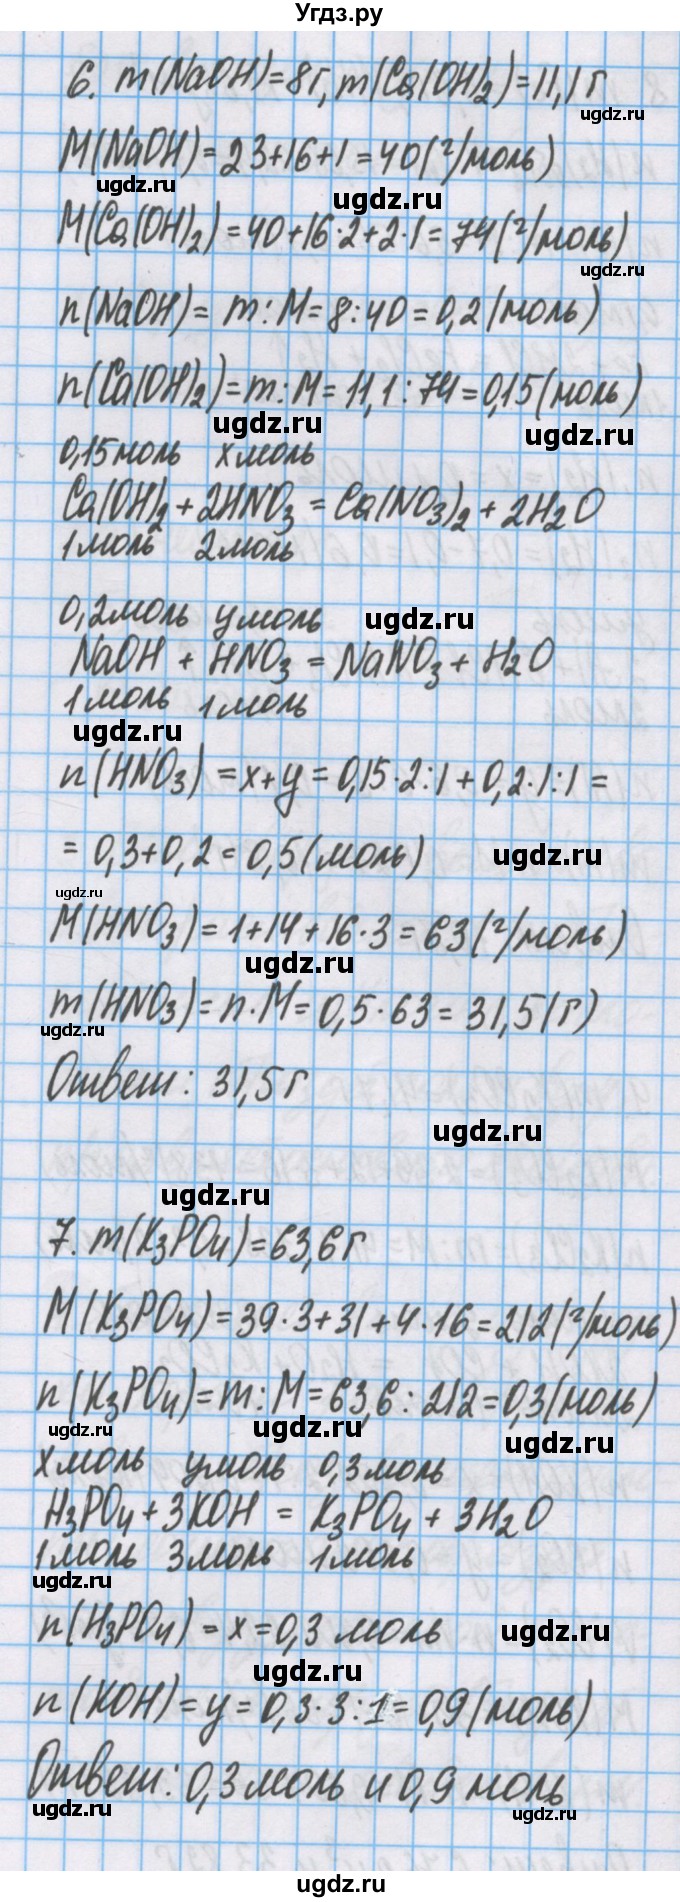 Угдз.ру
6. m(NaOH)=8г, m(Ca(OH)₂)=11,1 г
ugdz.ru
M(NaOH)=23+16+1=40(г/моль)
ugdz.ru ugdz.ru
M(Ca(OH)₂)=40+16·2+2·1=74(г/моль)
ugdz.ru
n(NaOH)= m:M=8:40=0,2(моль)
n(Ca(OH)₂)=m:M=11,1:74=0,15(моль)
ugdz.ru ugdz.ru
0,15моль xмоль
Ca(OH)₂+2HNO₃=Ca(NO₃)₂+2H₂O
1моль 2моль
0,2моль yмоль ugdz.ru
NaOH + HNO₃ = NaNO₃ + H₂O
1моль 1моль
ugdz.ru
n(HNO₃)=x+y=0,15·2:1+0,2·1:1=
=0,3+0,2=0,5(моль) ugdz.ru
ugdz.ru
M(HNO₃)=1+14+16·3=63(г/моль)
ugdz.ru
m(HNO₃)=n·M=0,5·63=31,5(г)
ugdz.ru
Ответ: 31,5г
ugdz.ru
ugdz.ru
7. m(K₃PO₄)=63,6г
M(K₃PO₄)=39·3+31+4·16=212(г/моль)
n(K₃PO₄)=m:M=63,6:212=0,3(моль)
ugdz.ru ugdz.ru ugdz.ru
xмоль yмоль 0,3моль
H₃PO₄+3KOH = K₃PO₄ + 3H₂O
1моль 3моль 1моль
ugdz.ru
n(H₃PO₄)=x=0,3 моль ugdz.ru
ugdz.ru
n(KOH)=y=0,3·3:1=0,9(моль)
Ответ: 0,3моль и 0,9 моль
ugdz.ru ugdz.ru
ugdz.ru